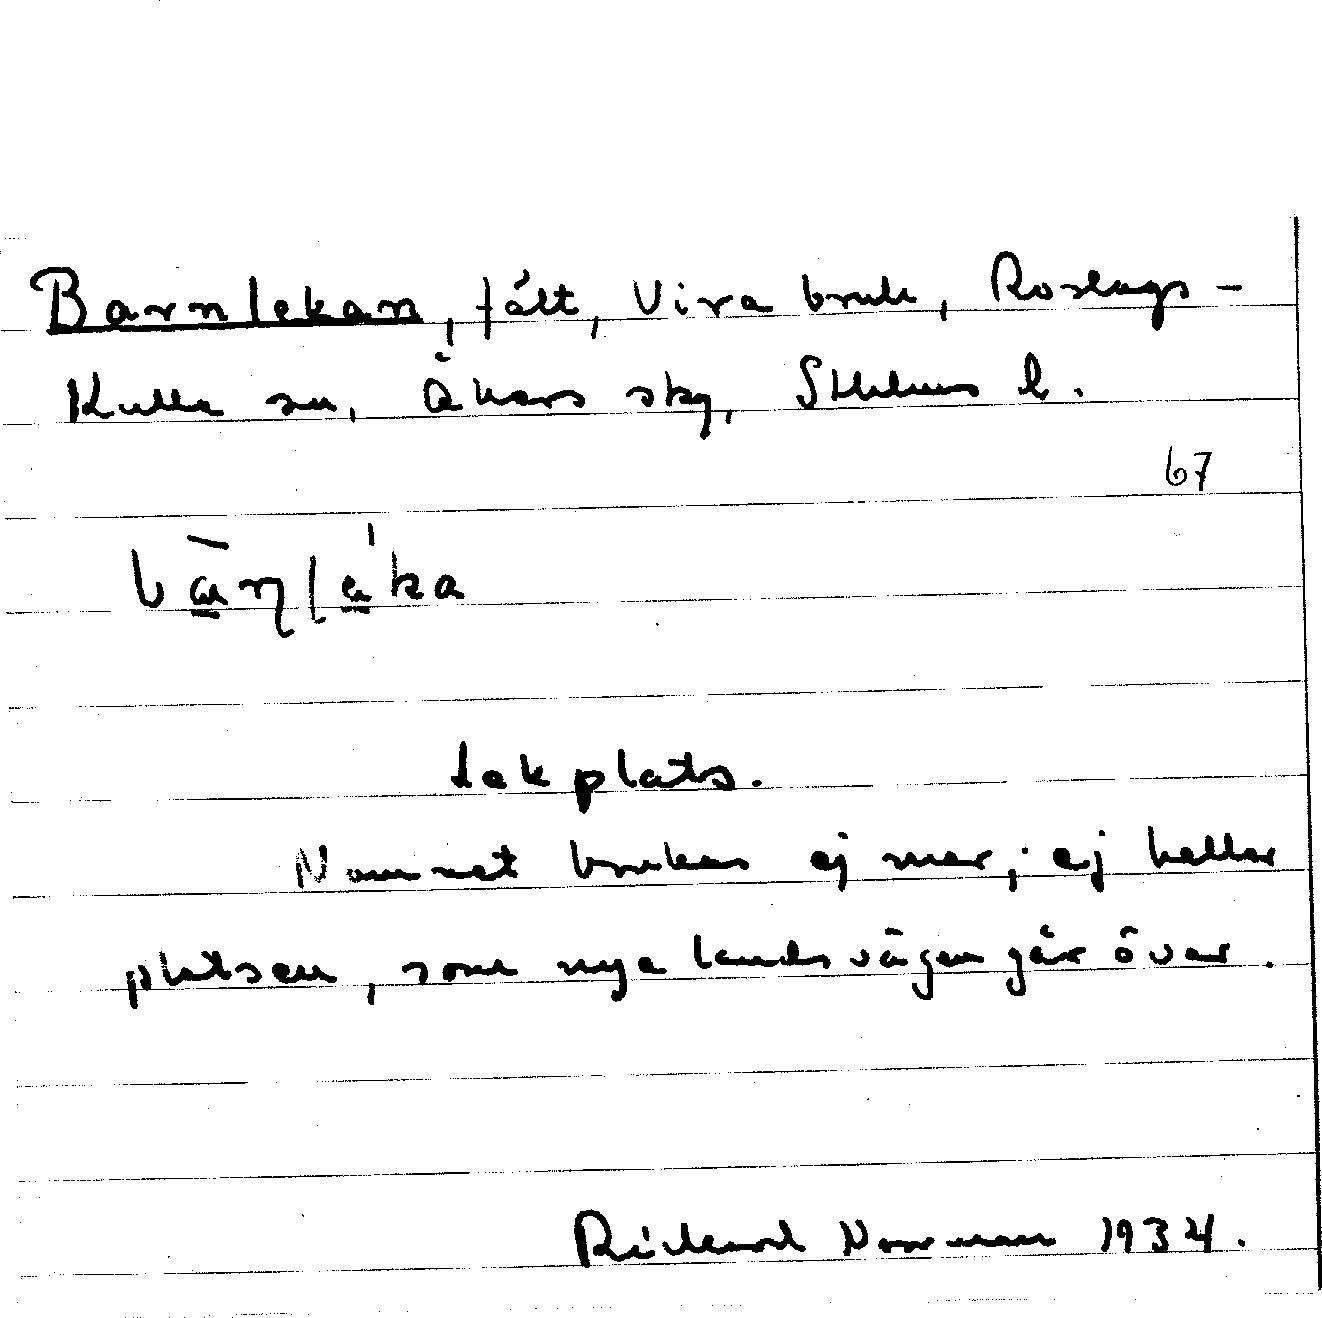 Barnlekan, fält, Vira bruk, Roslags-
Kulla sn, Åkers skg, Sthlms l.
67
bàꞃļéka
Lekplats.
Namnet brukas ej mer; ej heller
platsen, som nya landsvägen går över.
Rickard Norrman 1934.